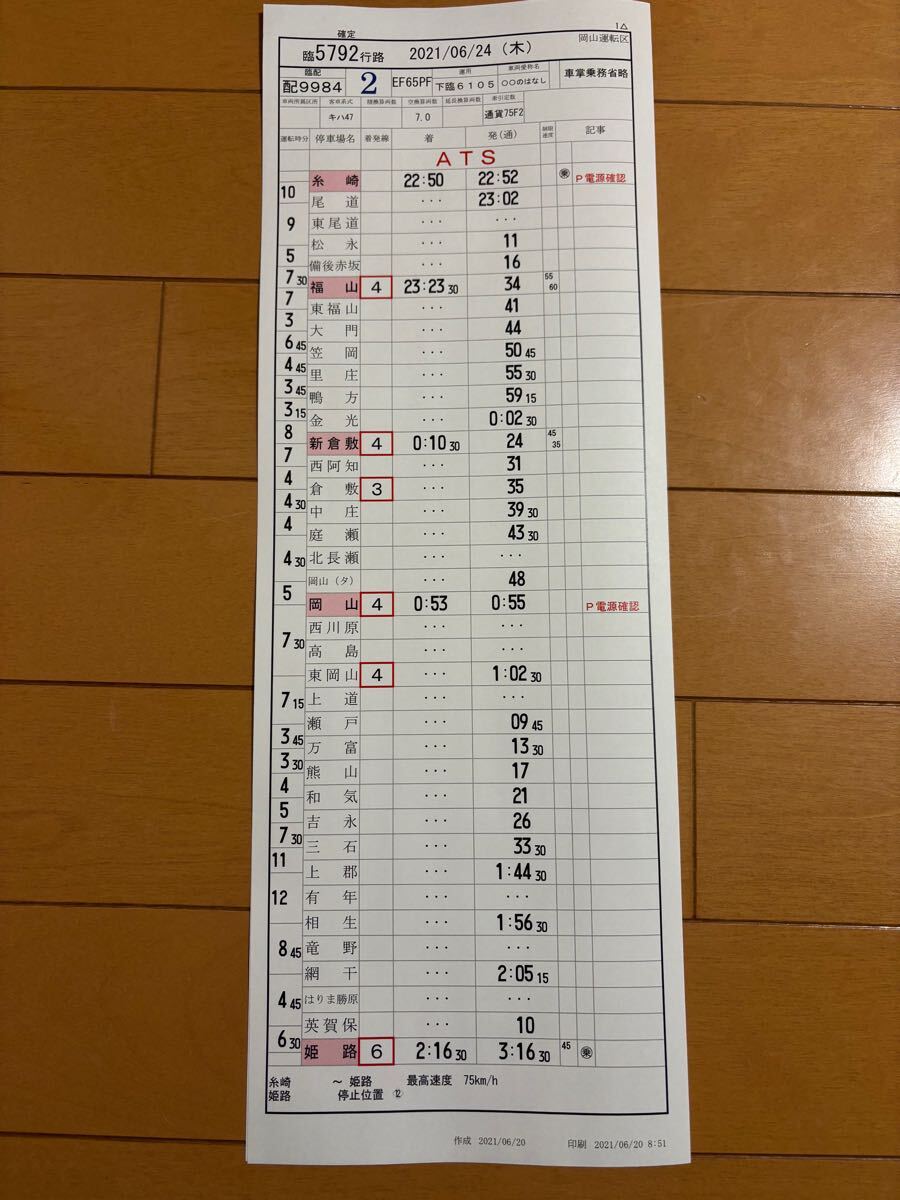 1△
確定
岡山運転区
臨5792行路 2021/06/24 (木)
臨配 運用 車両愛称名
配9984 2 EF65PF 下臨6105 ○○のはなし 車掌乗務省略
車両所属区所 客車系式 積換算両数 空換算両数 延長換算両数 牽引定数
キハ47 7.0 通貨75F2
運転時分 停車場名 着発線 着 発(通) 制限速度 記事
ATS
糸崎 22:50 22:52 乗 P電源確認
10
尾道 ・・・ 23:02
9
東尾道 ・・・ ・・・
松永 ・・・ 11
5
備後赤坂 ・・・ 16
7 30
福山 4 23:23 30 34 55 60
7
東福山 ・・・ 41
3
大門 ・・・ 44
6 45
笠岡 ・・・ 50 45
4 45
里庄 ・・・ 55 30
3 45
鴨方 ・・・ 59 15
3 15
金光 ・・・ 0:02 30
8
新倉敷 4 0:10 30 24 45 35
7
西阿知 ・・・ 31
4
倉敷 3 ・・・ 35
4 30
中庄 ・・・ 39 30
4
庭瀬 ・・・ 43 30
4 30
北長瀬 ・・・ ・・・
岡山(タ) ・・・ 48
5
岡山 4 0:53 0:55 P電源確認
西川原 ・・・ ・・・
7 30
高島 ・・・ ・・・
東岡山 4 ・・・ 1:02 30
7 15
上道 ・・・ ・・・
瀬戸 ・・・ 09 45
3 45
万富 ・・・ 13 30
3 30
熊山 ・・・ 17
4
和気 ・・・ 21
5
吉永 ・・・ 26
7 30
三石 ・・・ 33 30
11
上郡 ・・・ 1:44 30
12
有年 ・・・ ・・・
相生 ・・・ 1:56 30
8 45
竜野 ・・・ ・・・
網干 ・・・ 2:05 15
4 45
はりま勝原 ・・・ ・・・
英賀保 ・・・ 10
6 30
姫路 6 2:16 30 3:16 30 45 乗
糸崎 ～ 姫路 最高速度 75km/h
姫路 停止位置 ⑫
作成 2021/06/20 印刷 2021/06/20 8:51